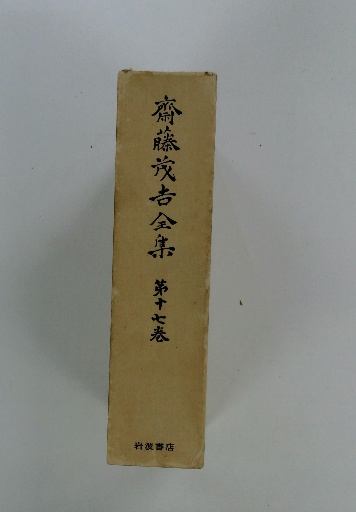 齋藤茂吉全集 第十七巻
岩波書店